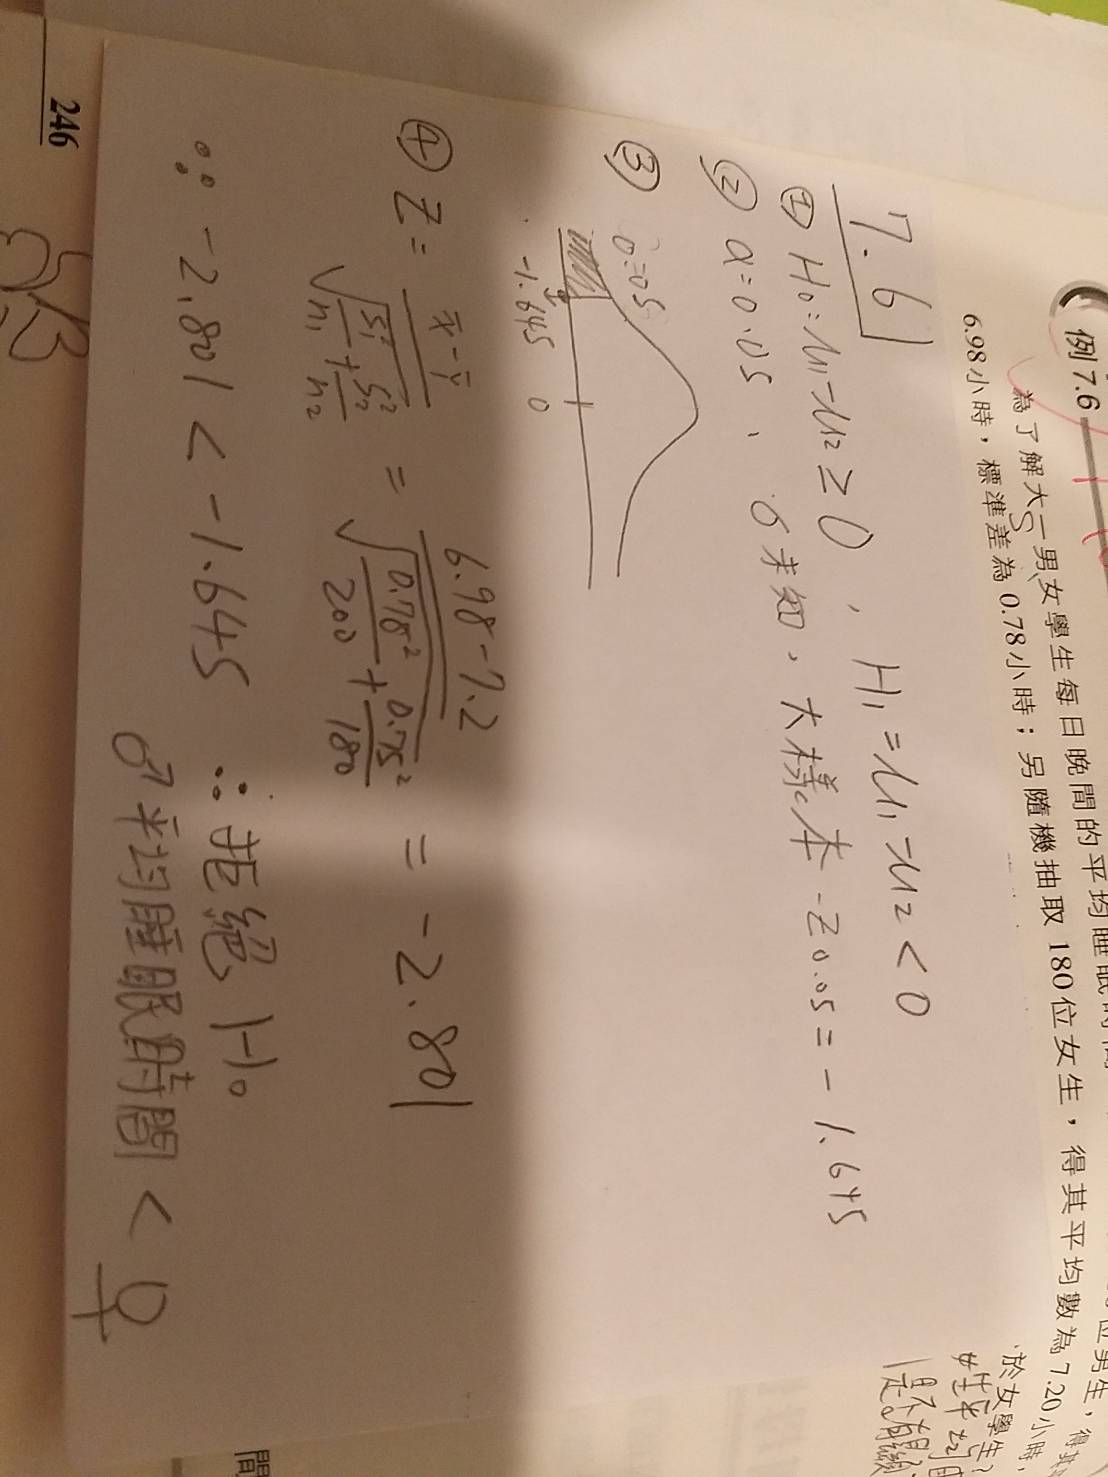 例7.6
為了解大一男女學生每日晚間的平均睡眠時間
6.98小時，標準差為0.78小時；另隨機抽取180位女生，得其平均數為7.20小時，
位男生，得其
於女學生？
7.6
① H₀=μ₁-μ₂≥0, H₁=μ₁-μ₂<0
② α=0.05、σ未知、大樣本 -Z0.05=-1.645
③ 0.05
-1.645 0
④ Z= x̄-ȳ / √(S₁²/n₁ + S₂²/n₂) = 6.98-7.2 / √(0.78²/200 + 0.75²/180) = -2.801
∵ -2.801 < -1.645 ∴拒絕H₀
♂平均睡眠時間<♀
246
間